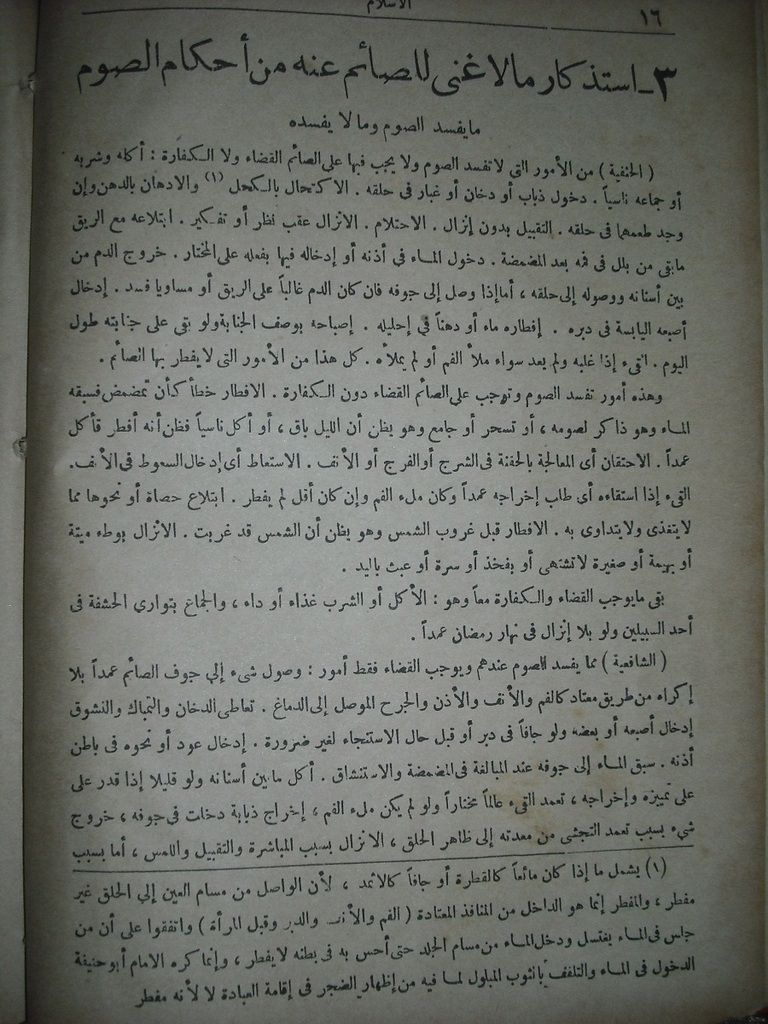 ١٦
الاسلام
٣ــ استذكار مالاغنى للصائم عنه من أحكام الصوم
مايفسد الصوم وما لا يفسده
( الحنفية ) من الأمور التى لاتفسد الصوم ولا يجب فيها على الصائم القضاء ولا الكفارة : أكله وشربه
أو جماعه ناسياً . دخول ذباب أو دخان أو غبار فى حلقه . الاكتحال بالكحل (١) والادهان بالدهن وإن
وجد طعمهما فى حلقه . التقبيل بدون إنزال . الاحتلام . الانزال عقب نظر أو تفكير . ابتلاعه مع الريق
مابقى من بلل فى فمه بعد المضمضة . دخول الماء فى أذنه أو إدخاله فيها بفعله على المختار . خروج الدم من
بين أسنانه ووصوله إلى حلقه ، أماإذا وصل إلى جوفه فان كان الدم غالباً على الريق أو مساويا فسد . إدخال
أصبعه اليابسة فى دبره . إفطاره ماء أو دهناً فى إحليله . إصباحه بوصف الجنابة ولو بقى على جنابته طول
اليوم . القىء إذا غلبه ولم يعد سواء ملأ الفم أو لم يملأه . كل هذا من الأمور التى لايفطر بها الصائم .
وهذه أمور تفسد الصوم وتوجب على الصائم القضاء دون الكفارة . الافطار خطأ كأن تمضمض فسبقه
الماء وهو ذاكر لصومه ، أو تسحر أو جامع وهو يظن أن الليل باق ، أو أكل ناسياً فظن أنه أفطر فأكل
عمداً . الاحتقان أى المعالجة بالحقنة فى الشرج أوالفرج أو الأنف . الاستعاط أى إدخال السعوط فى الأنف .
القىء إذا استقاءه أى طلب إخراجه عمداً وكان ملء الفم وإن كان أقل لم يفطر . ابتلاع حصاة أو نحوها مما
لايتغذى ولايتداوى به . الافطار قبل غروب الشمس وهو يظن أن الشمس قد غربت . الانزال بوطء ميتة
أو بهيمة أو صغيرة لاتشتهى أو بفخذ أو سرة أو عبث باليد .
بقى مايوجب القضاء والكفارة معاً وهو : الأكل أو الشرب غذاء أو داء ، والجماع بتوارى الحشفة فى
أحد السبيلين ولو بلا إنزال فى نهار رمضان عمداً .
( الشافعية ) مما يفسد الصوم عندهم ويوجب القضاء فقط أمور : وصول شىء إلي جوف الصائم عمداً بلا
إكراه من طريق معتاد كالفم والأنف والأذن والجرح الموصل إلى الدماغ . تعاطى الدخان والتمباك والنشوق
إدخال أصبعه أو بعضه ولو جافاً فى دبر أو قبل حال الاستنجاء لغير ضرورة . إدخال عود أو نحوه فى باطن
أذنه . سبق الماء إلى جوفه عند المبالغة فى المضمضة والاستنشاق . أكل مابين أسنانه ولو قليلا إذا قدر على
على تمييزه وإخراجه ، تعمد القىء عالماً مختاراً ولو لم يكن ملء الفم ، إخراج ذبابة دخلت فى جوفه ، خروج
شىء بسبب تعمد التجشى من معدته إلى ظاهر الحلق ، الانزال بسبب المباشرة والتقبيل واللمس ، أما بسبب
(١) يشمل ما إذا كان مائعاً كالقطرة أو جافاً كالاثمد ، لأن الواصل من مسام العين إلي الحلق غير
مفطر ، والمفطر إنما هو الداخل من المنافذ المعتادة ( الفم والأنف والدبر وقبل المرأة ) واتفقوا على أن من
جلس فى الماء يغتسل ودخل الماء من مسام الجلد حتى أحس به فى بطنه لايفطر ، وإنما كره الامام أبو حنيفة
الدخول فى الماء والتلفف بالثوب المبلول لما فيه من إظهار الضجر فى إقامة العبادة لا لأنه مفطر